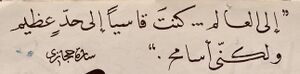 "إلى العالم ... كنتَ قاسياً إلى حدٍّ عظيم
ولكنّي أسامح ."
سارة حجازي